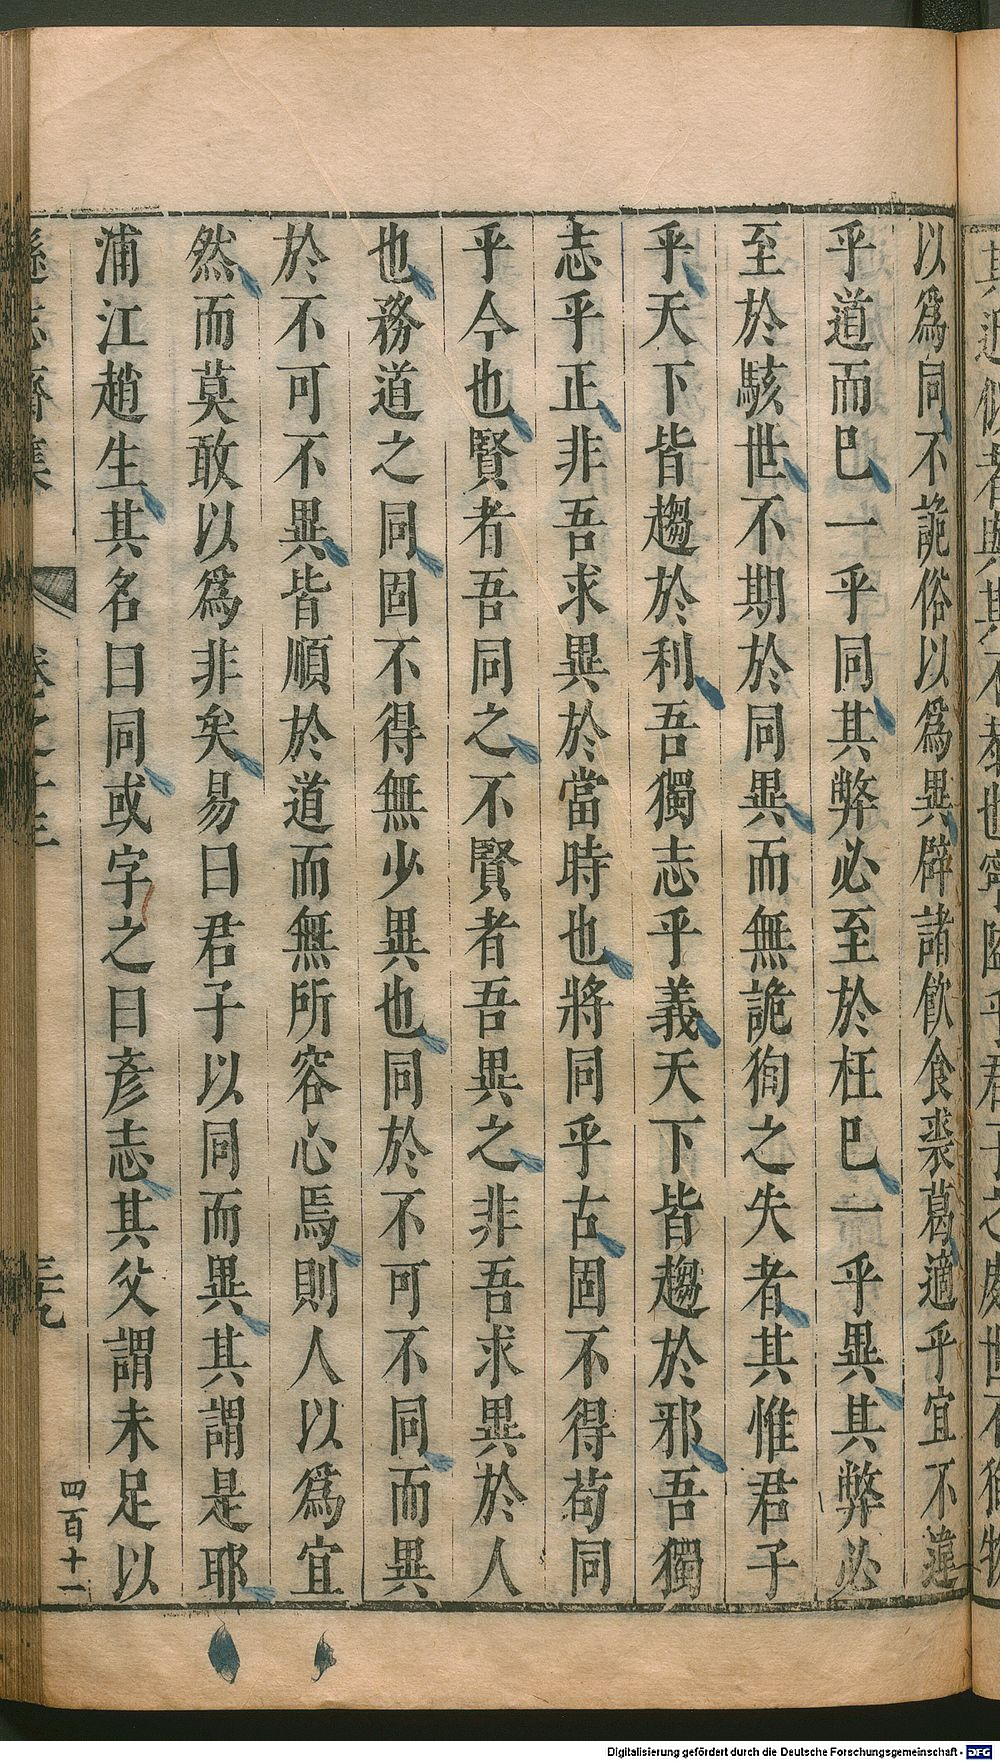 以爲同不詭俗以爲異辟諸飮食裘葛適乎宜不違
乎道而巳一乎同其弊必至於枉巳一乎異其弊必
至於駭世不期於同異而無詭徇之失者其惟君子
乎天下皆趨於利吾獨志乎義天下皆趨於邪吾獨
志乎正非吾求異於當時也將同乎古固不得苟同
乎今也賢者吾同之不賢者吾異之非吾求異於人
也務道之同固不得無少異也同於不可不同而異
於不可不異皆順於道而無所容心焉則人以爲宜
然而莫敢以爲非矣易曰君子以同而異其謂是耶
浦江趙生其名曰同或字之曰彦志其父謂未足以
遜志齋集 卷之十三 三十九
四百十一
Digitalisierung gefördert durch die Deutsche Forschungsgemeinschaft - DFG